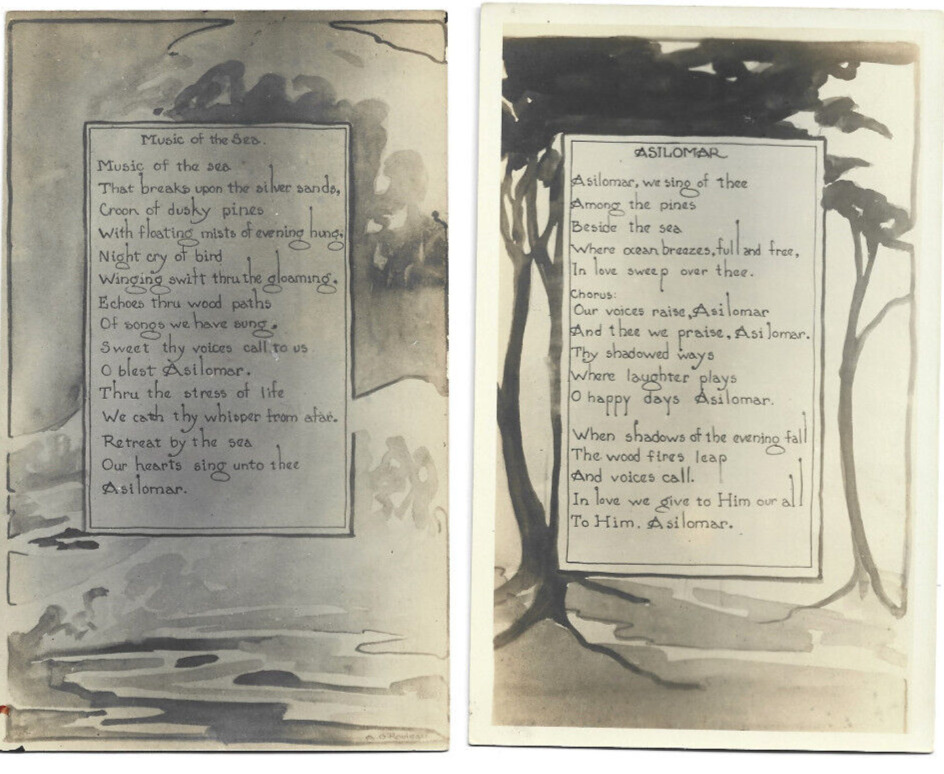 Music of the Sea.
Music of the sea
That breaks upon the silver sands,
Croon of dusky pines
With floating mists of evening hung.
Night cry of bird
Winging swift thru the gloaming.
Echoes thru wood paths
Of songs we have sung.
Sweet thy voices call to us
O blest Asilomar.
Thru the stress of life
We catch thy whisper from afar.
Retreat by the sea
Our hearts sing unto thee
Asilomar.
ASILOMAR
Asilomar, we sing of thee
Among the pines
Beside the sea
Where ocean breezes, full and free,
In love sweep over thee.
Chorus:
Our voices raise, Asilomar
And thee we praise, Asilomar.
Thy shadowed ways
Where laughter plays
O happy days Asilomar.
When shadows of the evening fall
The wood fires leap
And voices call.
In love we give to Him our all
To Him. Asilomar.